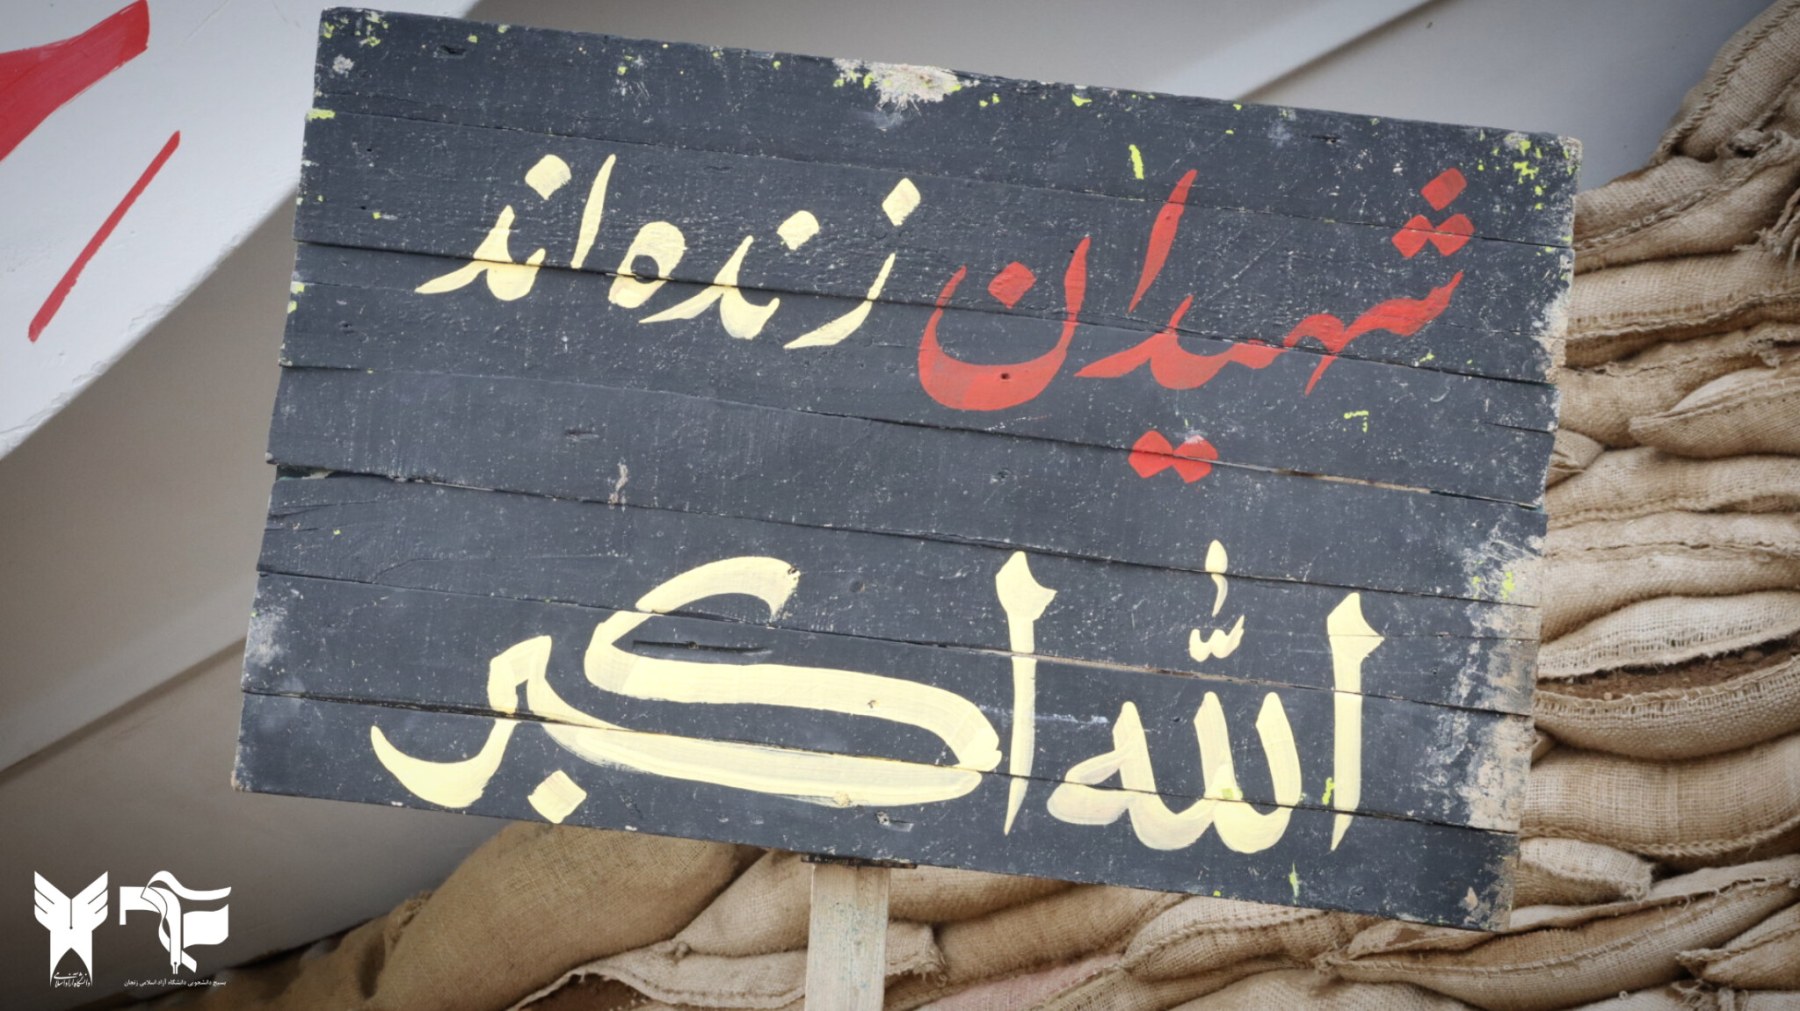 شهیدان زنده‌اند
الله اکبر
دانشگاه آزاد اسلامی
بسیج دانشجویی دانشگاه آزاد اسلامی زنجان